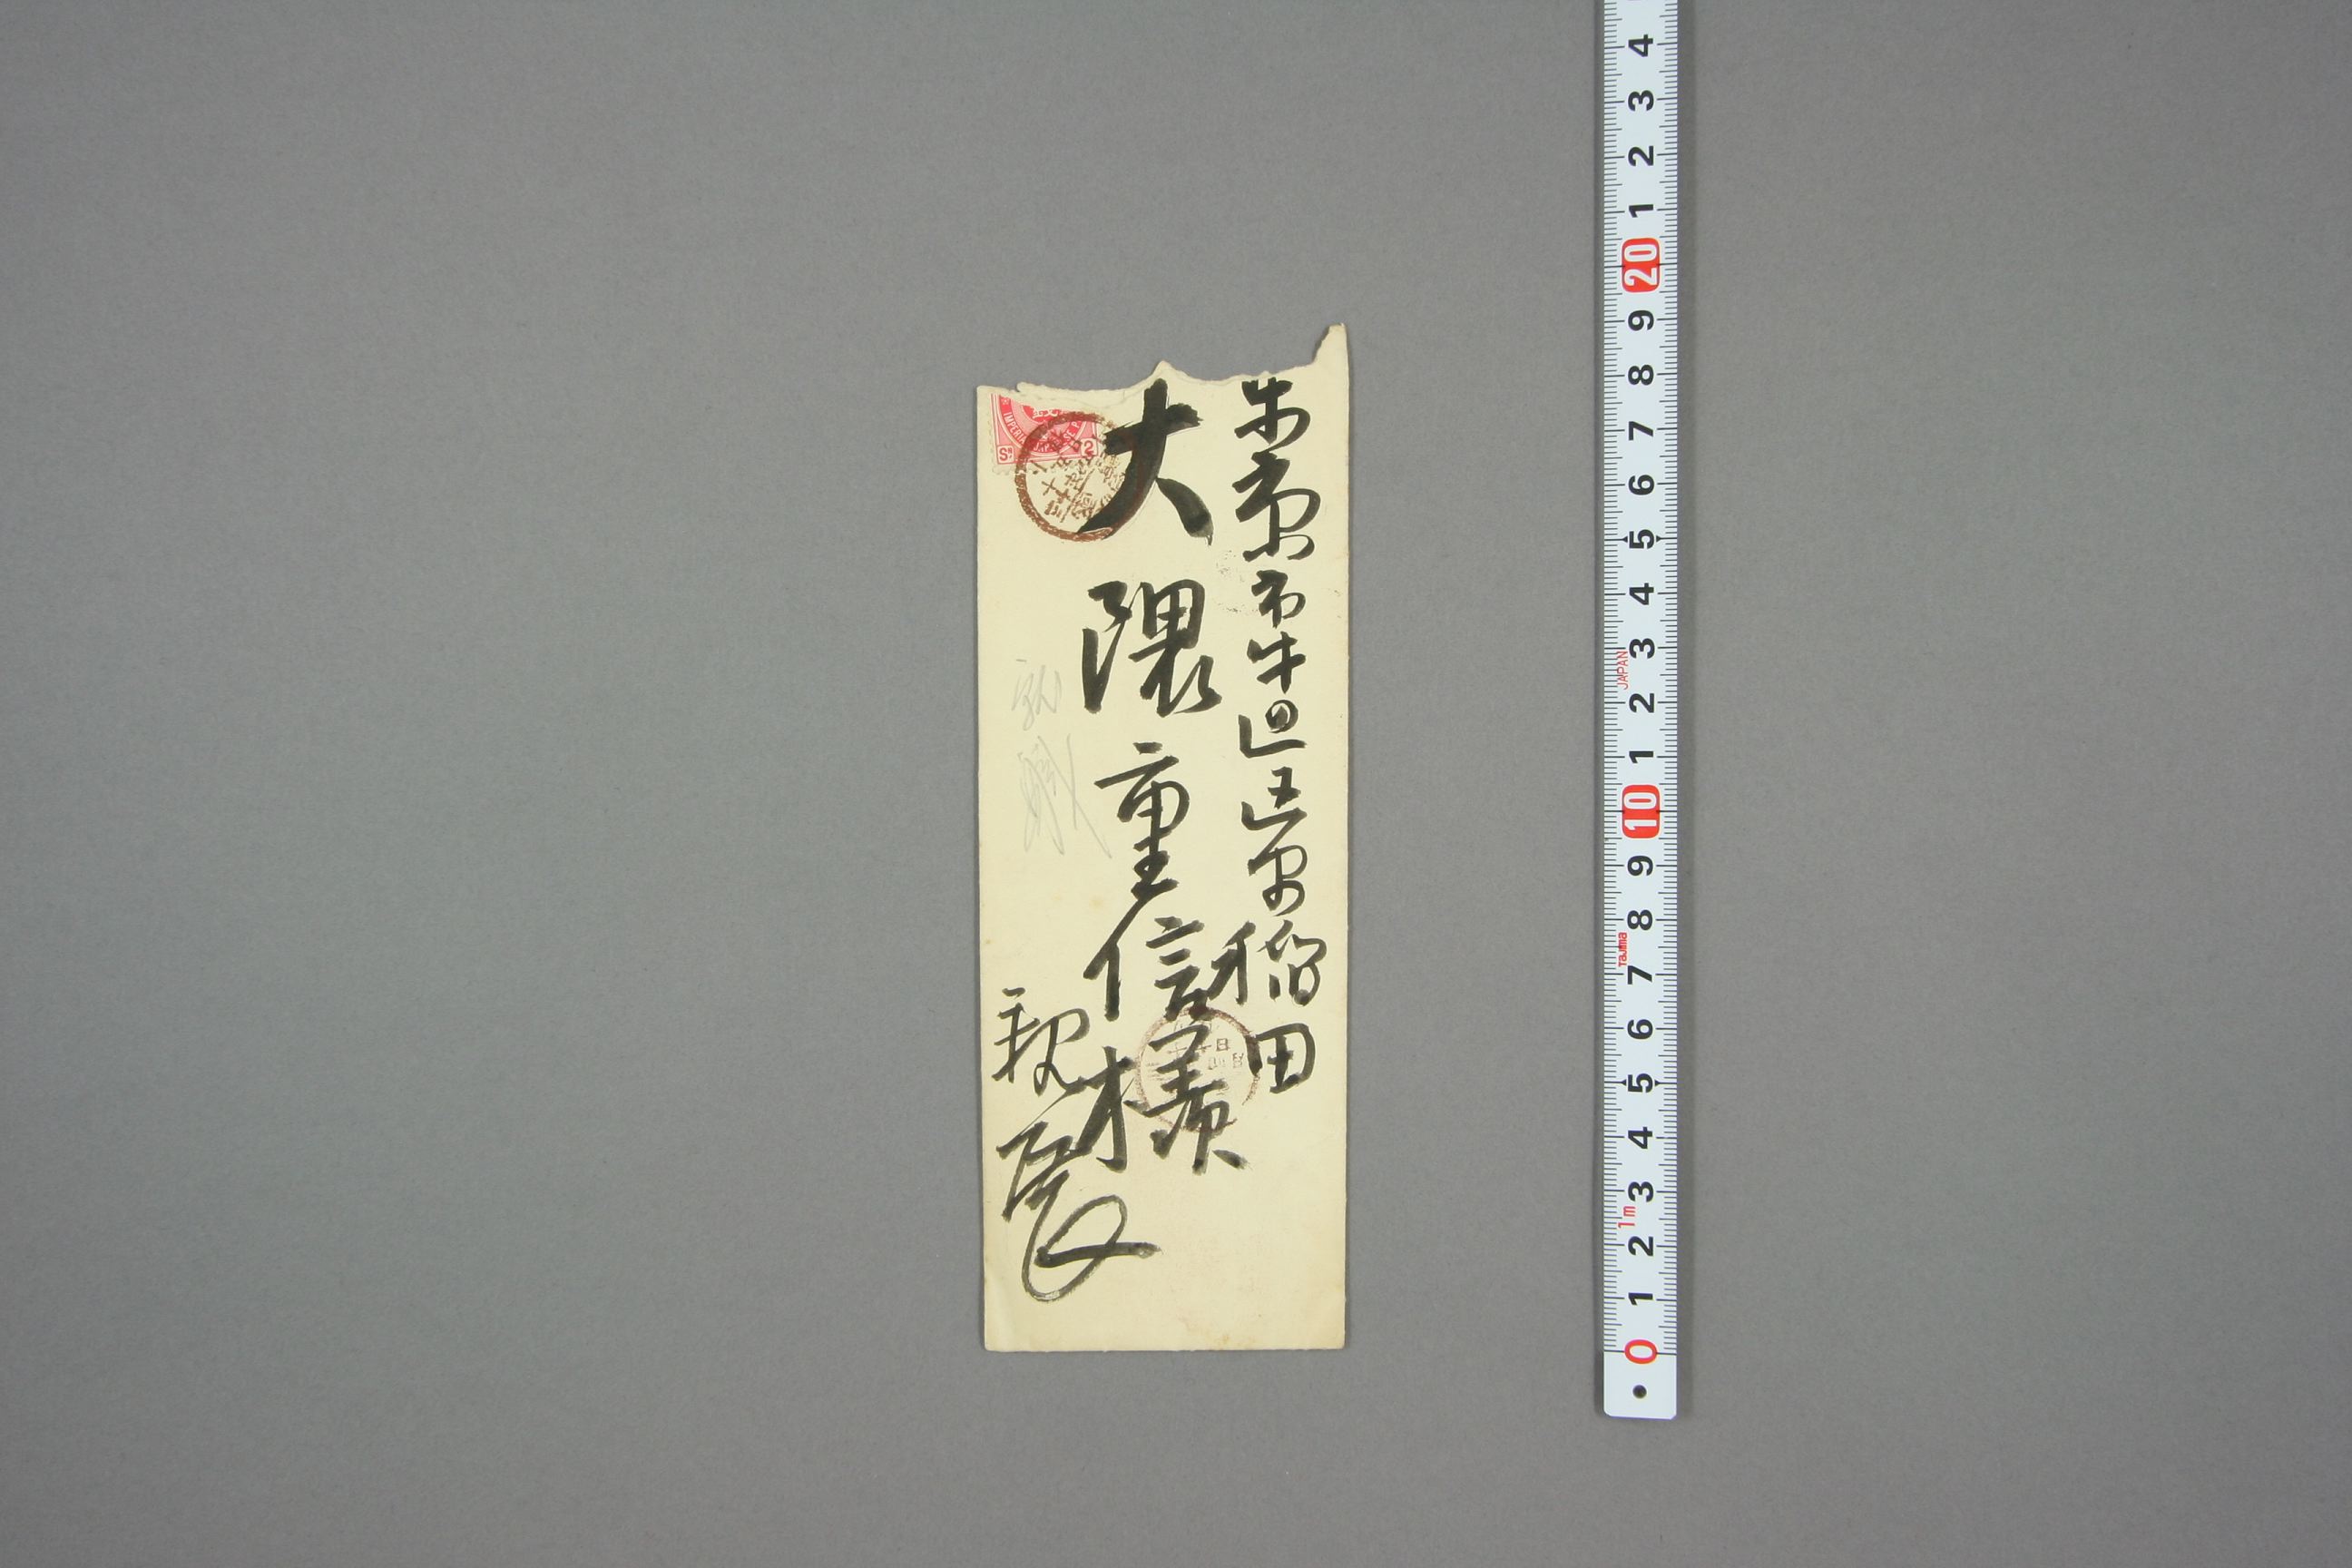 東京市牛込区早稲田
大隈重信様
親展
IMPERI
SE P
Sn
2
4
3
2
1
20
9
8
7
6
5
4
3
JAPAN
2
1
10
9
8
Tajima
7
6
5
4
3
1m
2
1
0